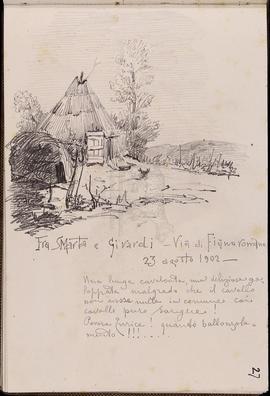 Fra Marta e Girardi - Via di Fiano romano
23 agosto 1902 -
Una lunga cavalcata, una deliziosa ga-
loppata malgrado che il cavallo
non avesse nulla in comune coi
cavalli puro sangue!
Povera Enrica! quando ballonzola-
mento!!!....
27